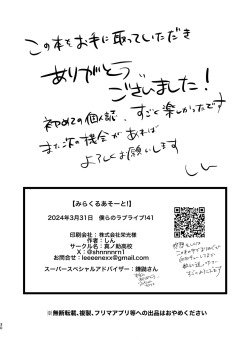 この本をお手に取っていただき
ありがとう
ございました!
初めての個人誌、すごく楽しかったです
また次の機会があれば
よろしくお願いします
しん
【みらくるあそーと!】
2024年3月31日 僕らのラブライブ!41
印刷会社:株式会社栄光様
作者:しん
サークル名:真ノ助高校
X:@shnnnnrn1
お問合せ:leeeenexx@gmail.com
スーパースペシャルアドバイザー:鎌鼬さん
感想もらえると
※無断転載、複製、フリマアプリ等への出品はおやめください